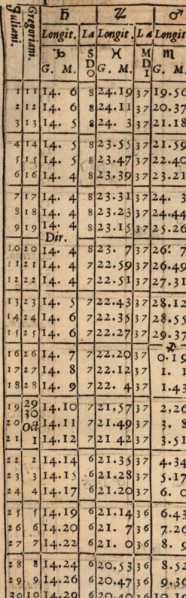 Iuliani. Gregoriani. ♄ ♃ ♂
Longit. La Longit. La Longit.
♑ S D O ♓ M D I ♏
G. M. G. M. G. M.
1 11 14. 6 8 24.19 37 19.56
2 12 14. 6 8 24.11 37 20.37
3 13 14. 5 8 24. 3 37 21.18
4 14 14. 5 8 23.55 37 21.59
5 15 14. 5 8 23.47 37 22.40
6 16 14. 4 8 23.39 37 23.21
7 17 14. 4 8 23.31 37 24. 3
8 18 14. 4 8 23.23 37 24.44
9 19 14. 4 8 23.15 37 25.26
Dir.
10 20 14. 4 8 23. 7 37 26. 7
11 21 14. 4 7 22.59 37 26.49
12 22 14. 4 7 22.51 37 27.31
13 23 14. 5 7 22.43 37 28.12
14 24 14. 6 7 22.35 37 28.55
15 25 14. 6 7 22.27 37 29.37
♐
16 26 14. 7 7 22.20 37 0.19
17 27 14. 8 7 22.12 37 1. 1
18 28 14. 9 7 22. 4 37 1.43
19 29 14.10 7 21.57 37 2.26
20 30 14.11 7 21.49 37 3. 8
Oct
21 1 14.12 7 21 42 37 3.51
22 2 14.14 6 21.35 37 4.34
23 3 14.15 6 21.28 37 5.17
24 4 14.17 6 21.20 37 6. 0
25 5 14.19 6 21.14 36 6.43
26 6 14.20 6 21. 7 36 7.26
27 7 14.22 6 21. 0 36 8. 9
28 8 14.24 6 20.53 36 8.52
29 9 14.26 6 20.47 36 9.36